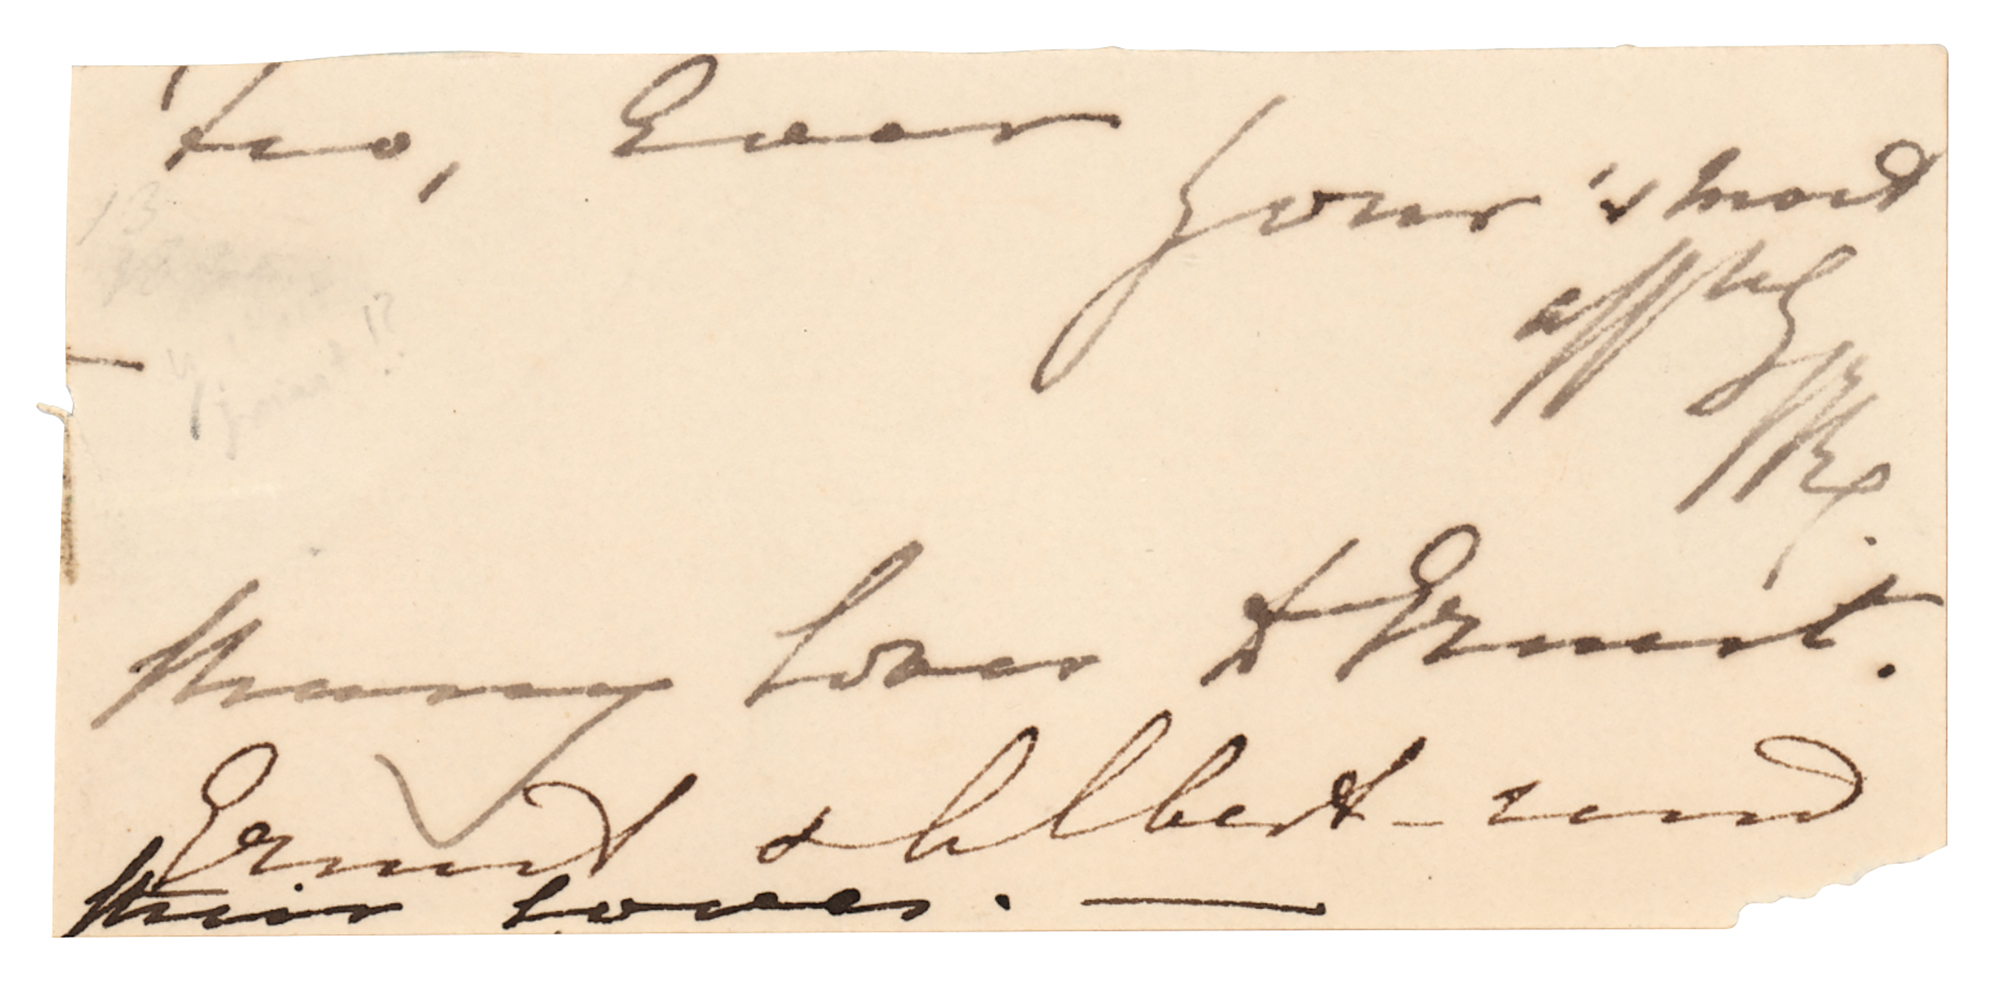 too, Ever
your's most
affly
Many loves to Ernest.
Ernest & Albert - send
their loves. —